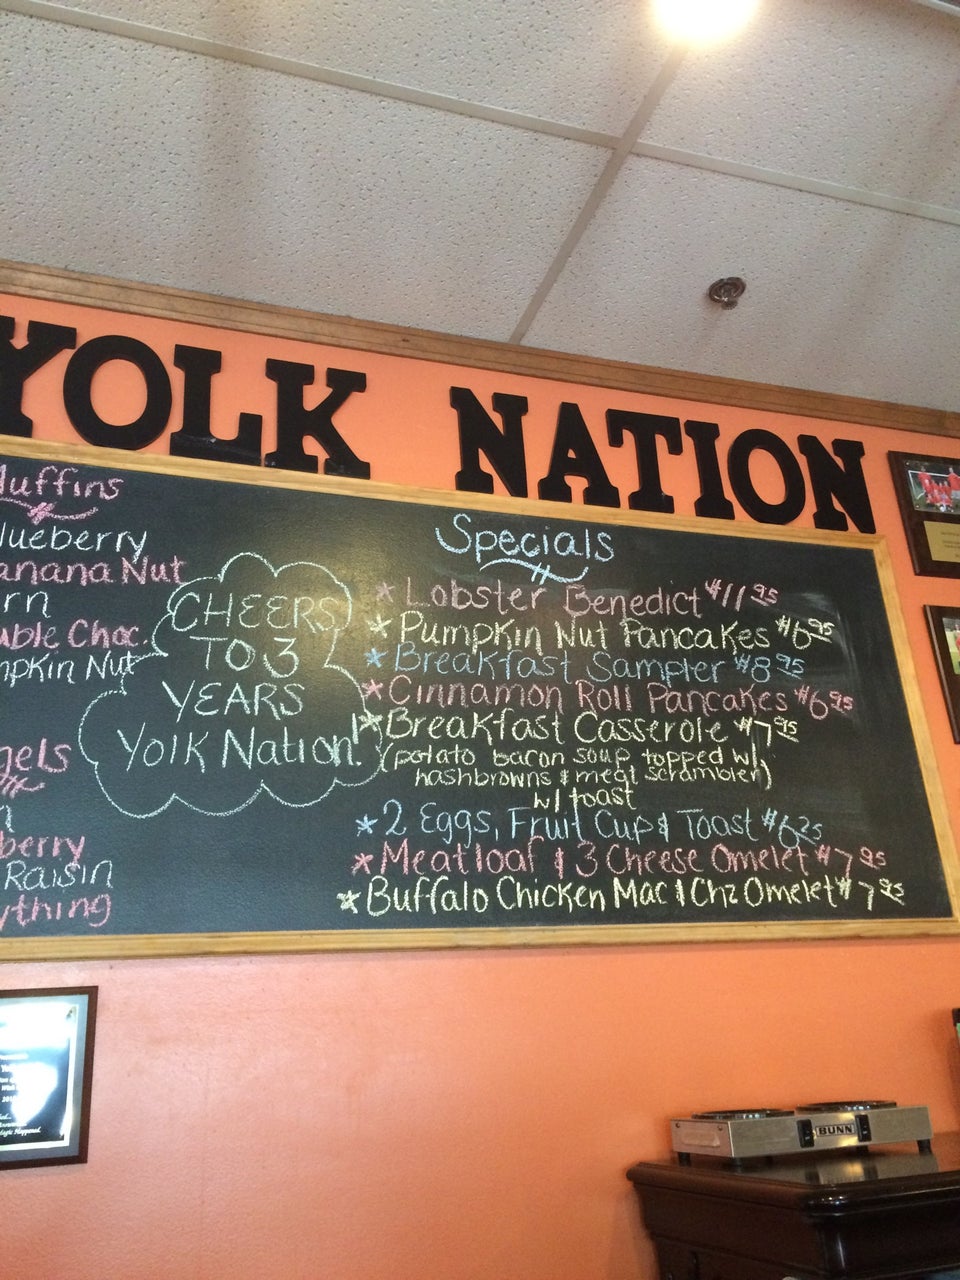 YOLK NATION
Muffins
Blueberry
Banana Nut
Corn
Double Choc.
Pumpkin Nut
Bagels
berry
Raisin
Everything
CHEERS
TO 3
YEARS
Yolk Nation!
Specials
* Lobster Benedict $11.95
* Pumpkin Nut Pancakes $6.95
* Breakfast Sampler $8.95
* Cinnamon Roll Pancakes $6.95
* Breakfast Casserole $7.95
(potato bacon soup topped w/
hashbrowns & meat scrambler)
w/ toast
* 2 Eggs, Fruit Cup & Toast $6.25
* Meatloaf & 3 Cheese Omelet $7.95
* Buffalo Chicken Mac & Chz Omelet $7.95
BUNN